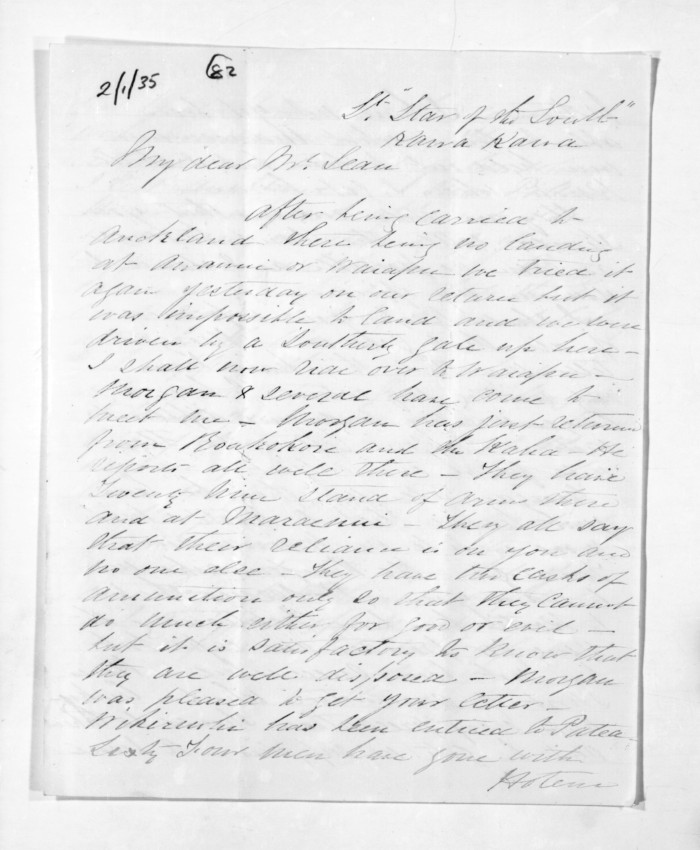 2/1/35
82
St. "Star of the South"
Kawa Kawa
My dear Mr. Lean
After being carried to
Auckland there being no landing
at Awanui or Waiapu we tried it
again yesterday on our return but it
was impossible to land and we were
driven by a Southerly gale up here -
I shall now ride over to Waiapu -
Morgan & several have come to
meet me - Morgan has just returned
from Raukokore and the Kaha - He
reports all well there - They have
Twenty Nine Stand of Arms there
and at Maraenui - They all say
that their reliance is on you and
no one else - They have two casks of
ammunition only so that they cannot
do much either for good or evil -
but it is satisfactory to know that
they are well disposed - Morgan
was pleased to get your letter -
has been enticed to Patea
Sixty Four men have gone with